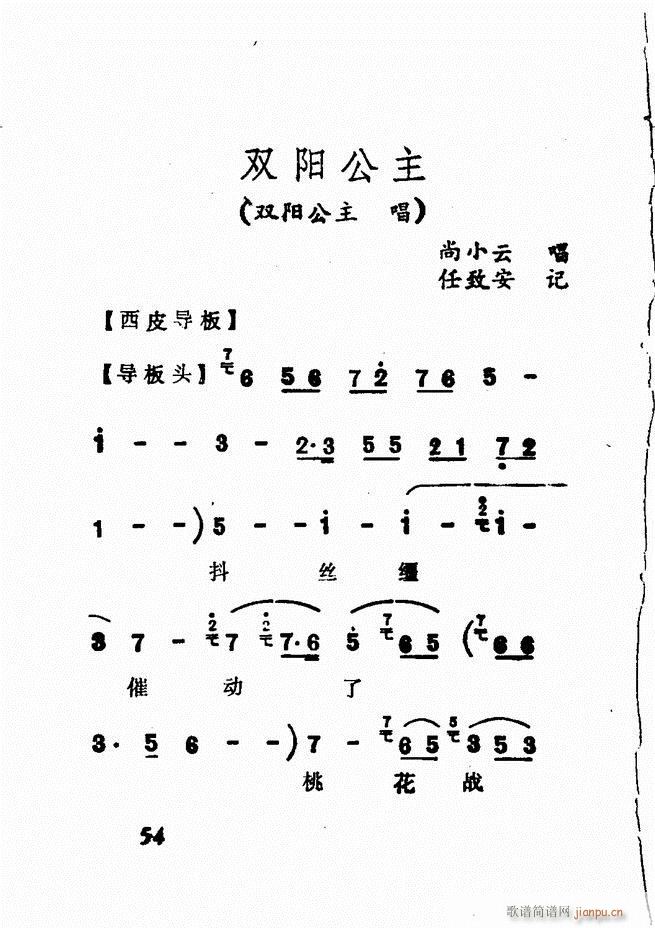 双阳公主
(双阳公主 唱)
尚小云 唱
任致安 记
【西皮导板】
【导板头】 7 6 56 72 76 5 -
1 - - 3 - 2·3 55 21 72
1 - -) 5 - - 1 - 1 - 2 1 -
抖 丝 缰
3 7 - 2 7 2 7·6 5 7 65 (7 66
催 动 了
3· 5 6 - -) 7 - 7 65 5 3 53
桃 花 战
54
歌谱简谱网 jianpu.cn